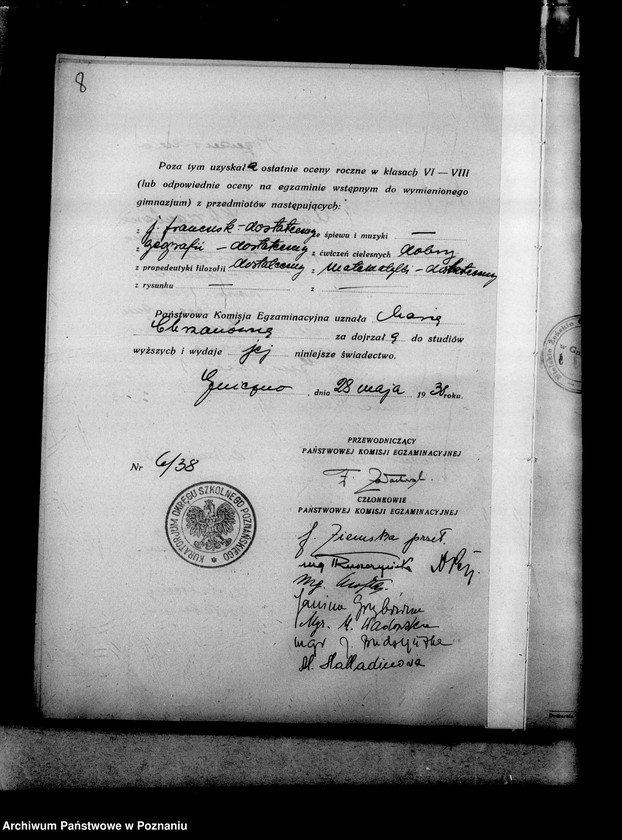 8
Poza tym uzyskała ostatnie oceny roczne w klasach VI — VIII
(lub odpowiednie oceny na egzaminie wstępnym do wymienionego
gimnazjum) z przedmiotów następujących:
z j. francusk - dostateczny ze śpiewu i muzyki —
z geografii - dostateczny z ćwiczeń cielesnych dobry
z propedeutyki filozofii dostateczny z matematyki - dostateczny
z rysunku — z —
Państwowa Komisja Egzaminacyjna uznała Marię
Chrzanównę za dojrzałą do studiów
wyższych i wydaje jej niniejsze świadectwo.
Gniezno, dnia 28 maja 1938 roku.
PRZEWODNICZĄCY
PAŃSTWOWEJ KOMISJI EGZAMINACYJNEJ
Nr 6/38
F.
CZŁONKOWIE
PAŃSTWOWEJ KOMISJI EGZAMINACYJNEJ
KURATORIUM OKRĘGU SZKOLNEGO POZNAŃSKIEGO
J. Ziemska przeł.
mgr
Mgr.
Janina
Mgr. M. Wadowska
mgr J.
M.
Drukarnia
Archiwum Państwowe w Poznaniu